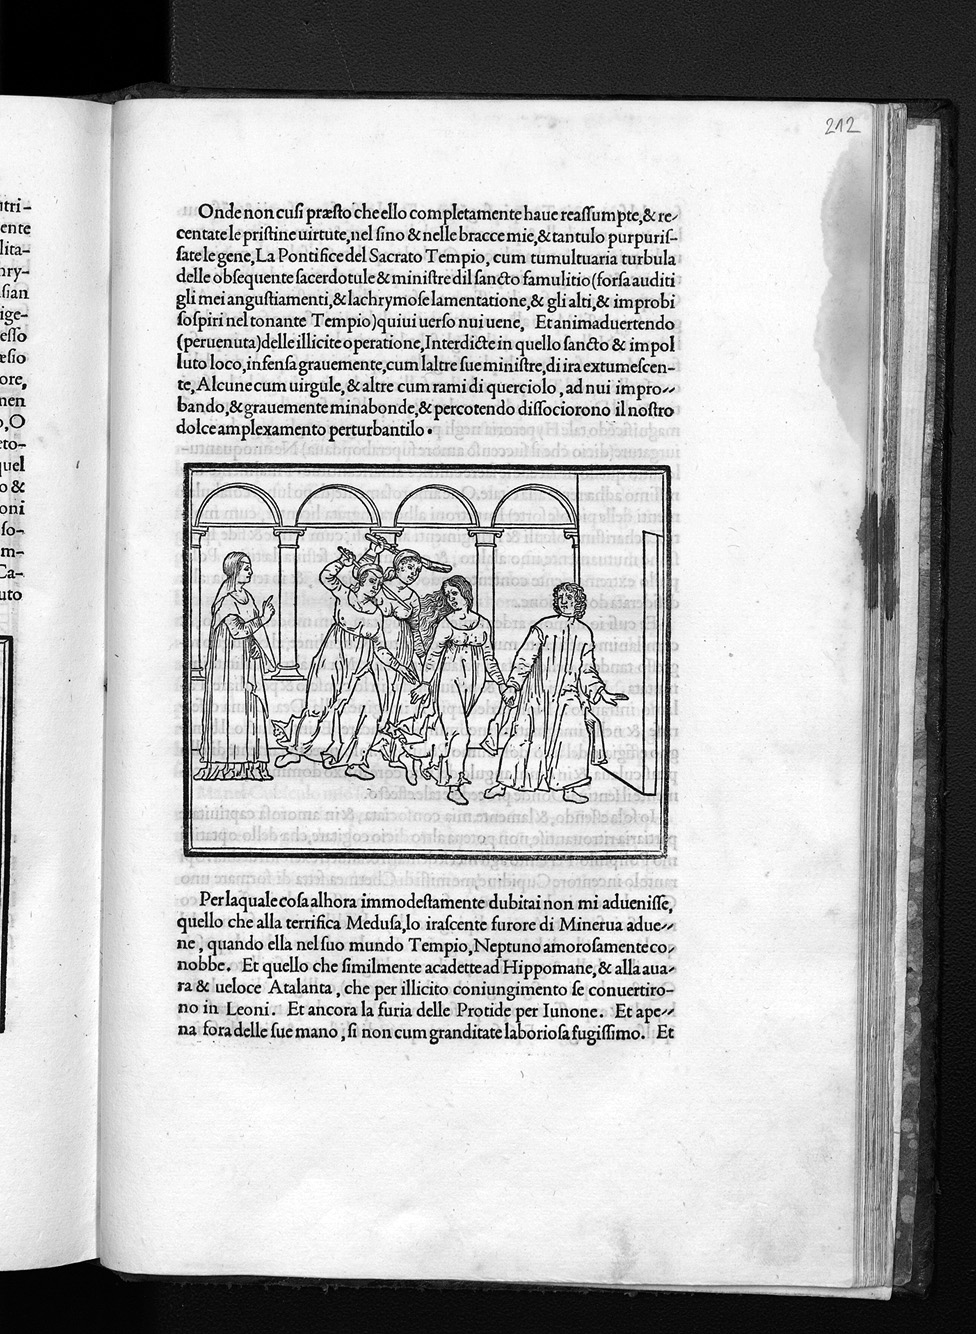 212
Onde non cusi præsto che ello completamente haue reassumpte,& re-
centate le pristine uirtute,nel sino & nelle bracce mie,& tantulo purpuris-
sate le gene,La Pontifice del Sacrato Tempio, cum tumultuaria turbula
delle obsequente sacerdotule & ministre dil sancto famulitio(forsa auditi
gli mei angustiamenti,& lachrymose lamentatione,& gli alti,& improbi
sospiri nel tonante Tempio)quiui uerso nui uene, Et animaduertendo
(peruenuta)delle illicite operatione,Interdicte in quello sancto & impol
luto loco,infensa grauemente,cum laltre sue ministre,di ira extumescen-
te,Alcune cum uirgule, & altre cum rami di querciolo, ad nui impro-
bando,& grauemente minabonde,& percotendo dissociorono il nostro
dolce amplexamento perturbantilo.
Per laquale cosa alhora immodestamente dubitai non mi aduenisse,
quello che alla terrifica Medusa,lo irascente furore di Minerua adue-
ne, quando ella nel suo mundo Tempio,Neptuno amorosamente co-
nobbe. Et quello che similmente acadette ad Hippomane,& alla aua-
ra & ueloce Atalanta, che per illicito coniungimento se conuertiro-
no in Leoni. Et ancora la furia delle Protide per Iunone. Et ape-
na fora delle sue mano, si non cum granditate laboriosa fugissimo. Et